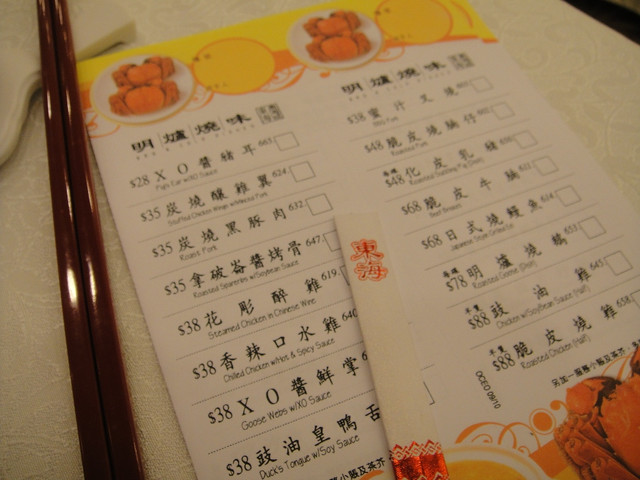 明爐燒味
$28 XO醬豬耳 663
Pig's Ear w/XO Sauce
$35 炭燒釀雞翼 624
$35 炭燒黑豚肉 632
Roast Pork
$35 拿破崙醬烤骨 647
Roasted Spareribs w/Soybean Sauce
$38 花彫醉雞 619
Steamed Chicken in Chinese Wine
$38 香辣口水雞 640
Chilled Chicken w/Hot & Spicy Sauce
$38 XO醬鮮掌
Goose Webs w/XO Sauce
$38 豉油皇鴨舌
Duck's Tongue w/Soy Sauce
東海
明爐燒味
$38 蜜汁叉燒
BBQ Pork
$48 脆皮燒腩仔
Roasted Pork
$48 化皮乳豬
$68 脆皮牛腩
Beef Breast
$68 日式燒鰻魚 614
Japanese Style Grilled Eel
$78 明爐燒鵝 653
Roasted Goose
半隻
$88 豉油雞 645
Chicken w/Soybean Sauce (Half)
半隻
$88 脆皮燒雞 658
Roasted Chicken (Half)